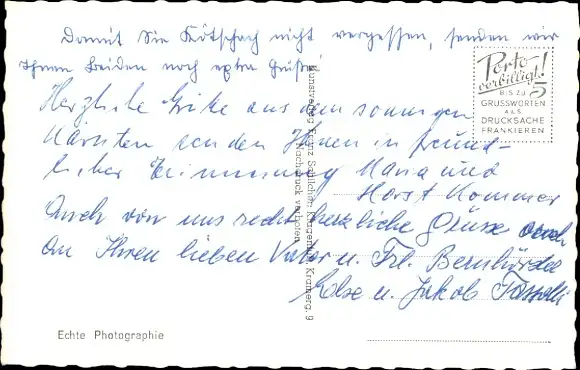 Damit Sie Kötschach nicht vergessen, senden wir
Ihnen beiden noch extra Grüße!
Herzliche Grüße aus dem sonnigen
Kärnten senden Ihnen in freund-
licher Erinnerung Maria und
Horst Kommer
Auch von uns recht herzliche Grüsse auch
an Ihren lieben Vater u. Frl.
Else u. Jakob
Porto-
verbilligt!
BIS ZU
5
GRUSSWORTEN
ALS
DRUCKSACHE
FRANKIEREN
Kunstverlag Franz Klagenfurt, Kramerg. 9
Nachdruck verboten
Echte Photographie